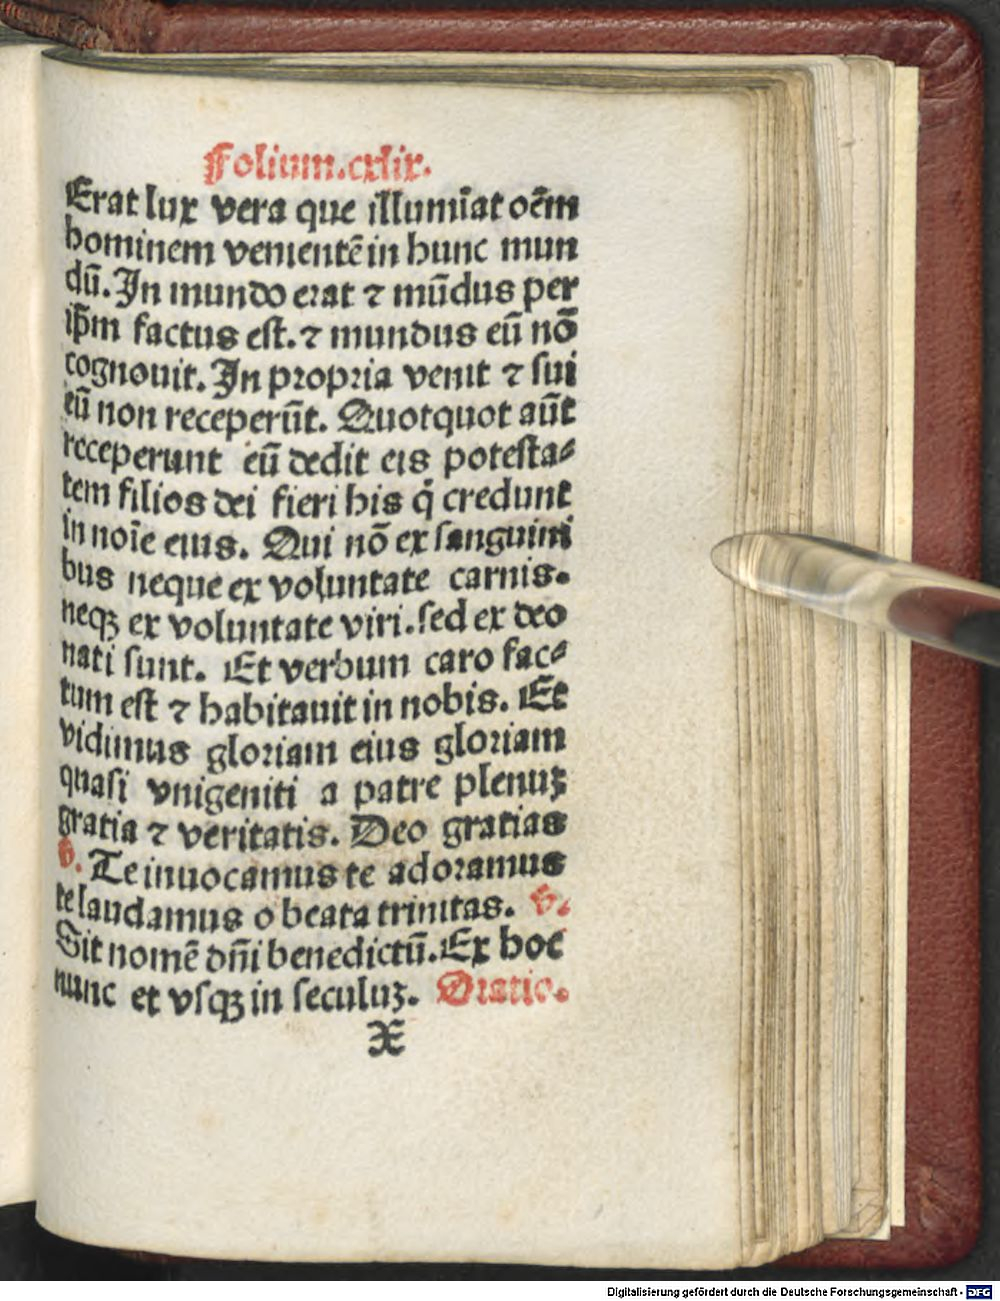 Folium.cxlix.
Erat lux vera que illumīat oēm
hominem venientē in hunc mun
dū. In mundo erat ⁊ mūdus per
ip̄m factus est. ⁊ mundus eū nō
cognouit. In propria venit ⁊ sui
eū non receperūt. Quotquot aūt
receperunt eū dedit eis potesta⸗
tem filios dei fieri his q̇ credunt
in noīe eius. Qui nō ex sanguini
bus neque ex voluntate carnis.
neqꝫ ex voluntate viri. sed ex deo
nati sunt. Et verbum caro fac⸗
tum est ⁊ habitauit in nobis. Et
vidimus gloriam eius gloriam
quasi vnigeniti a patre plenuꝫ
gratia ⁊ veritatis. Deo gratias
v. Te inuocamus te adoramus
te laudamus o beata trinitas. v.
Sit nomē dn̄i benedictū. Ex hoc
nunc et vsqꝫ in seculuꝫ. Oratio.
X
Digitalisierung gefördert durch die Deutsche Forschungsgemeinschaft - DFG